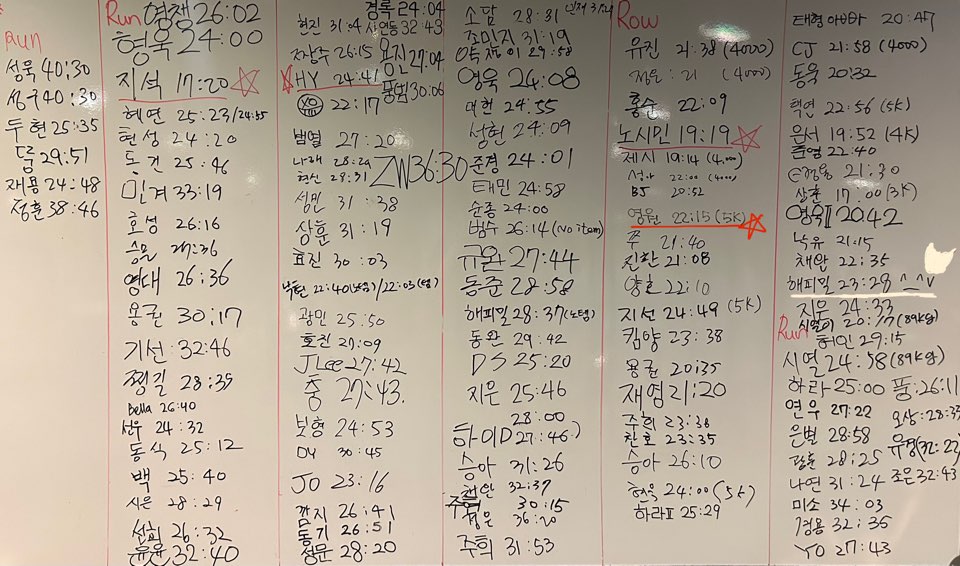 Run
성욱 40:30
성구 40:30
두현 25:35
29:51
재용 24:48
정훈 38:46
Run 영쟁 26:02
형욱 24:00
지석 17:20
혜연 25:23/24:55
현성 24:20
동건 25:46
민겨 33:19
호성 26:16
승모 27:36
영대 26:36
용권 30:17
기선 32:46
찡길 28:35
Bella 26:40
선우 24:32
동식 25:12
백 25:40
시은 28:29
선희 26:32
윤윤 32:40
경록 24:04
현진 31:41 시언동 32:43
자상수 26:15 용진 27:04
HY 24:41 풍범 30:06
22:17
범열 27:20
나래 28:29
현신 29:31
ZW 36:30
성민 31:38
상훈 31:19
효진 30:03
22:40 / 22:03
광민 25:50
호진 21:09
J Lee 27:42
충 27:43.
보형 24:53
DY 30:45
JO 23:16
깜지 26:41
동기 26:51
성문 28:20
소담 28:31
조민지 31:19
29:58
영욱 24:08
대현 24:55
성현 24:09
준경 24:01
태민 24:58
순종 24:00
범수 26:14 (No item)
규완 27:44
동준 28:58
해피밀 28:37 (노템)
동완 29:42
DS 25:20
지은 25:46
28:00
하이D 27:46.)
승아 31:26
채안 32:37
30:15
36:20
주희 31:53
Row
유진 21:38 (4000)
정윤 : 21 (4000)
홍수 22:09
노시민 19:19
제시 19:14 (4,000)
22:00 (4000)
BJ 20:52
영원 22:15 (5K)
주 21:40
진환 21:08
양호 22:10
지선 24:49 (5K)
킴양 23:38
용권 20:35
재영 21:20
주희 23:38
찬호 23:35
승아 26:10
현욱 24:00 (5K)
하라II 25:29
태형 아빠 20:47
CJ 21:58 (4000)
동욱 20:32
혁연 22:56 (5K)
윤서 19:52 (4K)
준영 22:40
21:30
상훈 17:00 (3K)
영욱II 20:42
낙유 21:15
채안 22:35
해피밀 23:28 ^^v
지우 24:33
(89kg)
Run 허민 29:15
시열 24:58 (89kg)
하라 25:00 풍:26:11
연우 27:22 오상:28:35
은별 28:58 유정(32:22)
광훈 28:25
나연 31:24 조은 32:43
미소 34:03
경용 32:35
YO 27:43